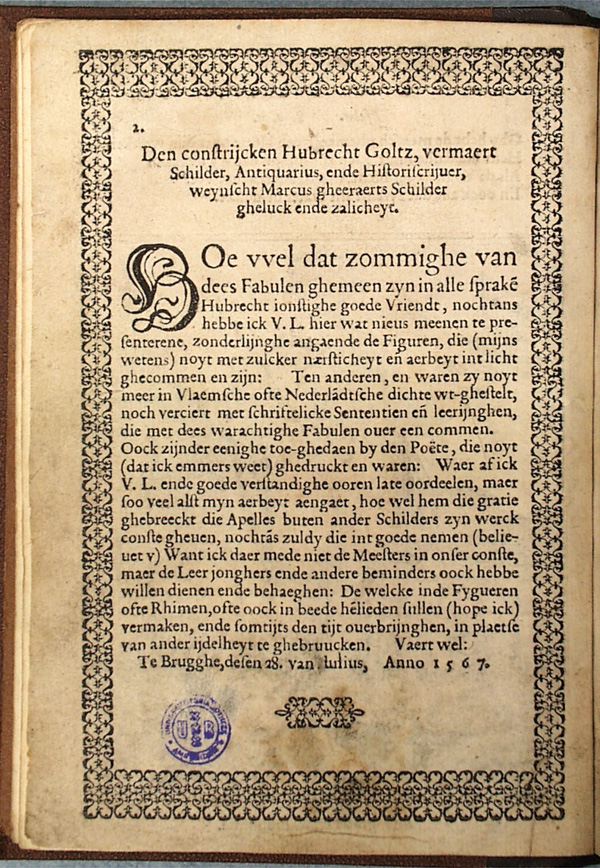 2.
Den conſtrijcken Hubrecht Goltz, vermaert
Schilder, Antiquarius, ende Hiſtoriſcrijuer,
weynſcht Marcus gheeraerts Schilder
gheluck ende zalicheyt.
HOe vvel dat zommighe van
dees Fabulen ghemeen zyn in alle ſprakē
Hubrecht ionſtighe goede Vriendt, nochtans
hebbe ick V. L. hier wat nieus meenen te pre-
ſenterene, zonderlijnghe angaende de Figuren, die (mijns
wetens) noyt met zulcker nærſticheyt eñ aerbeyt int licht
ghecommen en zijn: Ten anderen, en waren zy noyt
meer in Vlaemſche ofte Nederlādtſche dichte wt-gheſtelt,
noch verciert met ſchriftelicke Sententien eñ leerijnghen,
die met dees warachtighe Fabulen ouer een commen.
Oock zijnder eenighe toe-ghedaen by den Poëte, die noyt
(dat ick emmers weet) ghedruckt en waren: Waer af ick
V. L. ende goede verſtandighe ooren late oordeelen, maer
ſoo veel alſt myn aerbeyt aengaet, hoe wel hem die gratie
ghebreeckt die Apelles buten ander Schilders zyn werck
conſte gheuen, nochtās zuldy die int goede nemen (belie-
uet v) Want ick daer mede niet de Meeſters in onſer conſte,
maer de Leer jonghers ende andere beminders oock hebbe
willen dienen ende behaeghen: De welcke inde Fygueren
ofte Rhimen, ofte oock in beede hēlieden ſullen (hope ick)
vermaken, ende ſomtijts den tijt ouerbrijnghen, in plaetſe
van ander ijdelheyt te ghebruucken. Vaert wel:
Te Brugghe, deſen 28. van Iulius, Anno 1567.